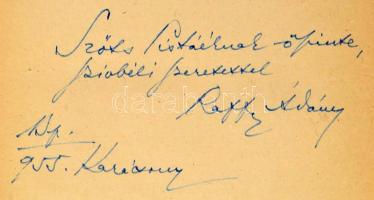 Szőts Pistáéknak őszinte,
szívbéli szeretettel
Raffy Ádám
Bp.
955. Karácsony